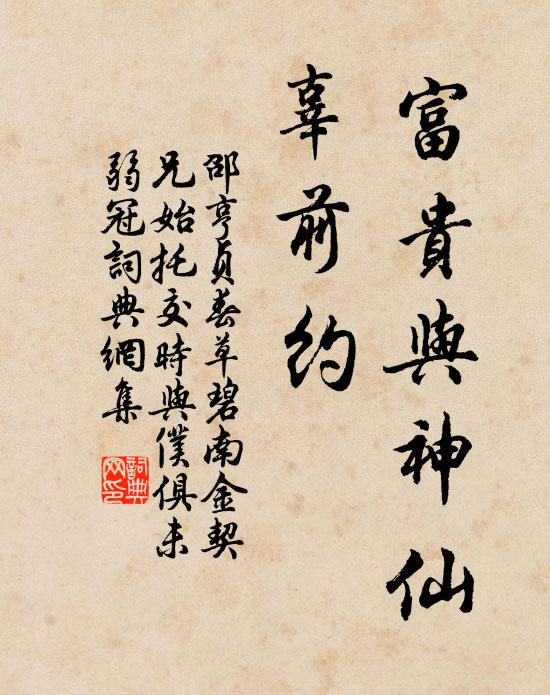 富貴與神仙
辜前約
邵亨貞春草碧南金契
兄始托交時與僕俱未
弱冠詞典網集
詞典
网印